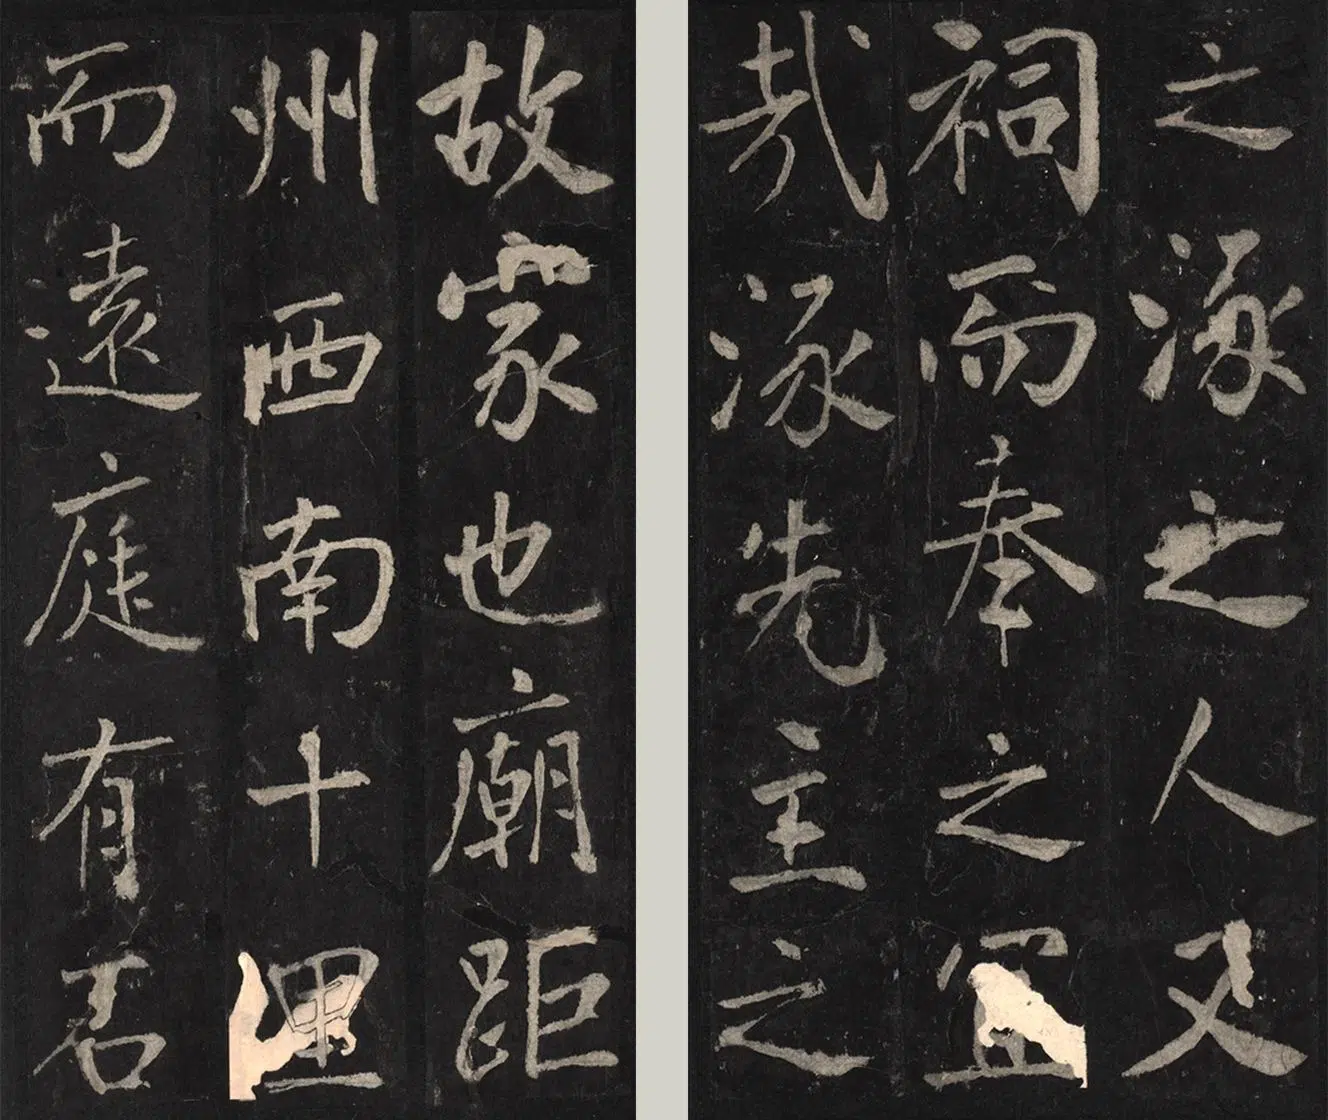 之涿之人又
祠而奉之宜
哉涿先主之
故家也廟距
州西南十里
而遠庭有石